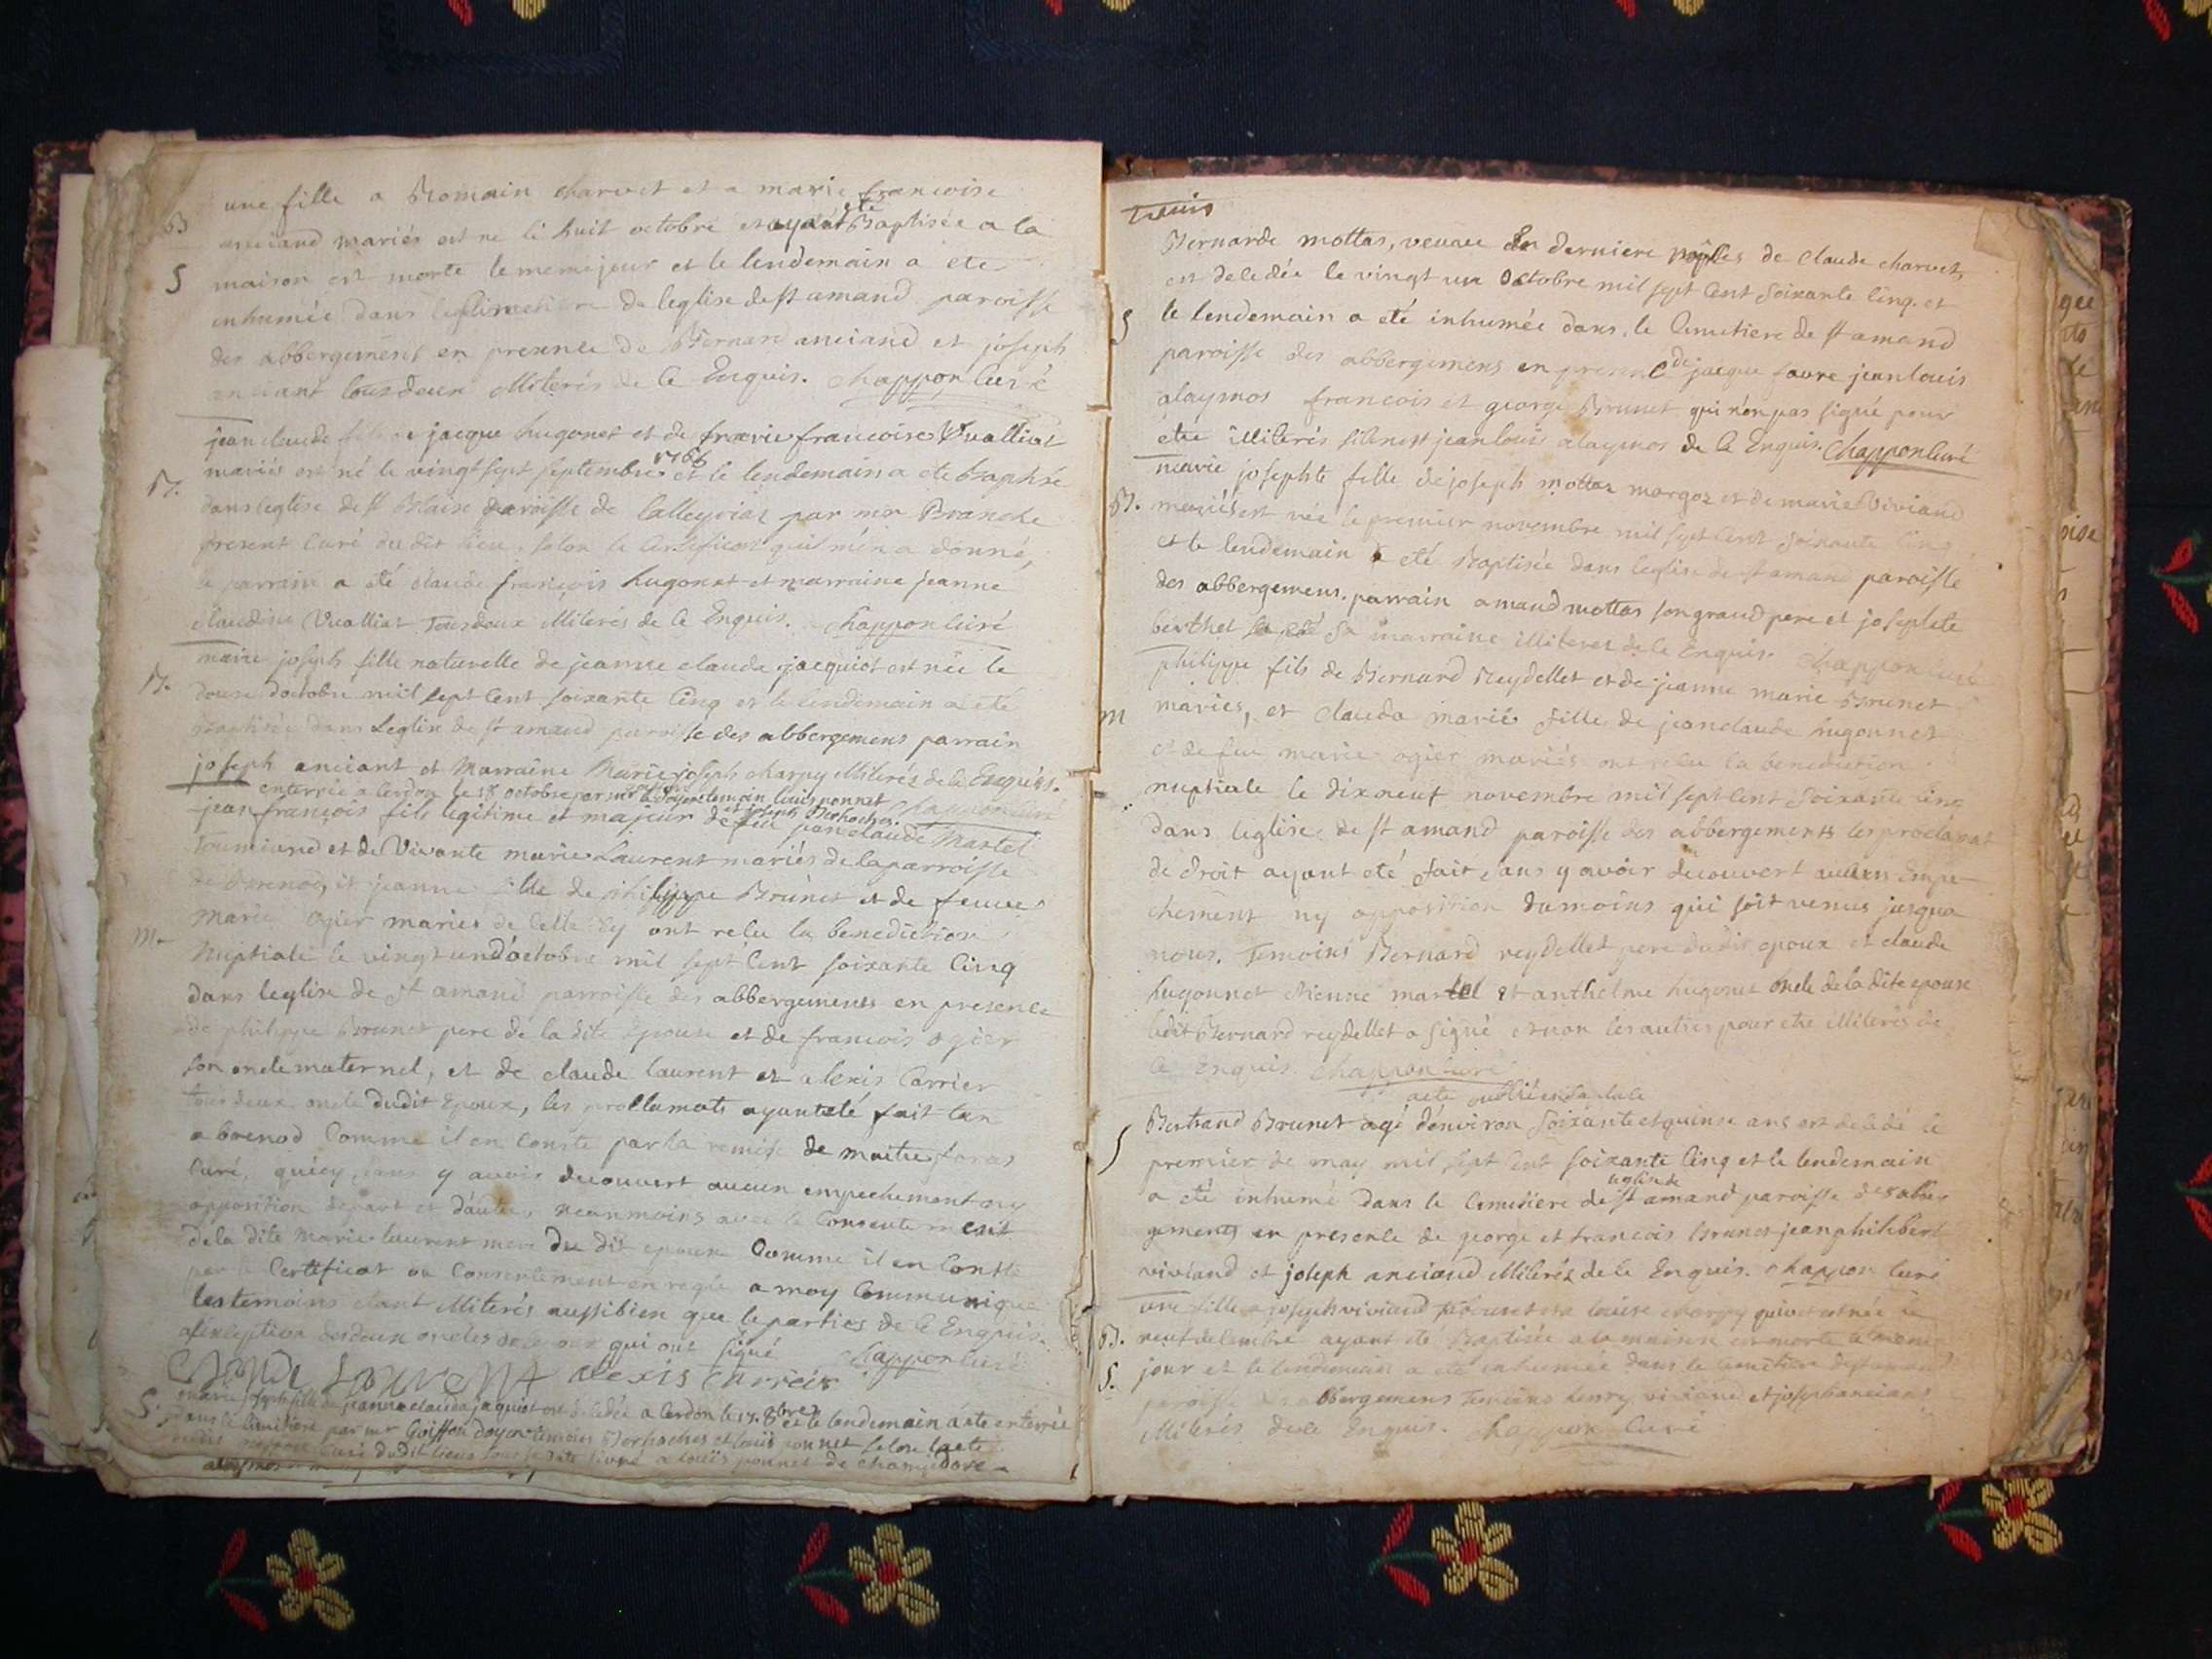 une fille a Romain charvet et a marie francoise
B
anciand mariés est ne le huit octobre et ayant été Baptisée a la
S
maison est morte le meme jour et le lendemain a ete
inhumée dans de leglise de st amand paroisse
des abbergement en presence de Bernard anciand et joseph
anciant tous deux illiterés de ce Enquis. chappon curé
jean claude fils de jacque hugonet et de francoise Vualliat
mariés est né le vingt sept septembre 1765 et le lendemain a ete baptisé
B.
dans leglise de st Blaise paroisse de Lalleyriat par mr Branche
present curé du dit lieu, selon le Certificat quil m'en a donné,
le parrain a été claude francois hugonet et marraine jeanne
claudine Vualliat Tous deux illiterés de ce Enquis. chappon curé
marie joseph fille naturelle de jeanne claude jacquiot est née le
B.
douse d'octobre mil sept cent soixante cinq et le lendemain a eté
Baptisée dans Leglise de st amand paroisse des abbergemens parrain
joseph anciant et Marraine Marie joseph charpy illiterés de ce Enquis.
enterrée a Cerdon le 18 octobre par mr Doyen temoin louis ponnet
chappon curé
joseph Berhochos
jean francois fils legitime et majeur de feu jean claude Martel
Tourniand et de Vivante marie Laurent mariés de la parroisse
de Brenod, et jeanne fille de philippe Brunet et de feue
marie ogier mariés de celle cy ont recu la benediction
m.
Nuptiale le vingt un d'octobre mil sept cent soixante cinq
dans leglise de st amand parroisse des abbergements en presence
de philippe Brunet pere de la dite Epouse et de francois ogier
son oncle maternel, et de claude laurent et alexis Carrier
tous deux oncle dudit Epoux, les proclamats ayant eté fait tan
a brenod Comme il en Conste par la remise de maitre foras
Curé, quicy, sans y avoir decouvert aucun empechement ny
opposition de part et d'autre, neanmoins avec le Consentement
de la dite marie laurent mere du dit epoux Comme il en Conste
par le Certificat ou Consentement en regle a moy Communiqué
les temoins etant illiterés aussi bien que les parties de ce Enquis.
a l'exception des deux oncles de qui ont signé chappon curé
CLAUDE LAURENT alexis Carrier
S.
marie joseph fille de jeanne claude jaquiot est decedée a Cerdon le 17. 8bre et le lendemain a ete enterrée
dans le cimitiere par mr Goiffon doyen temoins Berhochos et louis ponnet selon lacte
curé dudit lieu a louis ponnet de

Bernarde mottas, veuve en derniere nopces de claude charvet,
est decedée le vingt un octobre mil sept cent soixante cinq. et
S
le lendemain a eté inhumée dans le Cimetiere de st amand
paroisse des abbergemens en presence de jacque favre jean louis
alaymos francois et george Brunet qui n'on pas signé pour
etre illiterés si ce nest jean louis alaymos de ce Enquis. Chappon curé
marie josephte fille de joseph mottas margoz et de marie Viviand
B.
mariés est née le premier novembre mil sept cent soixante cinq
et le lendemain a eté Baptisée dans leglise de st amand paroisse
des abbergemens. parrain amand mottas son grand pere et josephte
berthet sa marraine illiteres de ce Enquis. chappon curé
philippe fils de Bernard Reydellet et de jeanne marie Brunet
m
mariés, et clauda marie fille de jean claude hugonnet
et de feu marie ogier mariés ont recu la benediction
nuptiale le dix neuf novembre mil sept cent soixante cinq
dans leglise de st amand paroisse des abbergements les proclamat
de droit ayant eté fait sans y avoir decouvert aucun Empe-
chement ny opposition dumoins qui soit venus jusqua
nous. Temoins Bernard reydellet pere du dit epoux et claude
hugonnet etienne martel et anthelme hugonet oncle de la dite epouse
ledit Bernard reydellet a signé et non les autres pour etre illiterés de
ce Enquis. chappon curé
acte oublié en sa date
S
Bertrand Brunet agé d'environ soixante et quinse ans est decedé le
premier de may mil sept cent soixante cinq et le lendemain
a eté inhumé dans le Cimetiere de leglise de st amand paroisse des abber
gements en presence de george et francois brunet jean philibert
viviand et joseph anciand illiterés de ce Enquis. chappon curé
une fille a joseph viviand et a louise charpy est née le
B.
neuf decembre ayant ete Baptisée a la maison est morte le meme
S.
jour et le lendemain a ete inhumée dans le cimetiere de st amand
paroisse des abbergemens Temoins henry viviand et joseph anciand
illiterés de ce Enquis. chappon curé